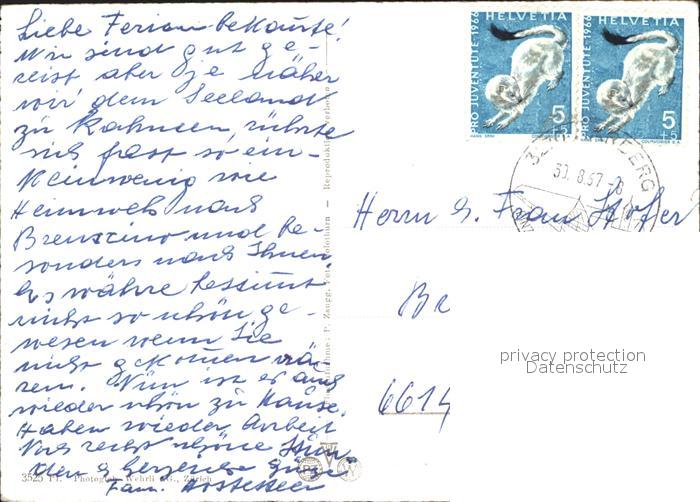 Liebe Ferienbekannte!
Wir sind gut ge-
reist aber je näher
wir dem Seeland
zu kahmen, rührte
sich fast so ein
klein wenig wie
Heimweh nach
Brenscino und be-
sonders nach Ihnen.
Es währe bestimt
nicht so schön ge-
wesen wenn Sie
nicht gekomen wä-
ren. Nun ist es auch
wieder schön zu Hause.
Haben wieder Arbeit
Noch recht schöne Stun
den & herzliche Grüsse
Fam. Hostettler
HELVETIA
PRO JUVENTUTE 1966
5
+5
HELVETIA
PRO JUVENTUTE 1966
5
+5
30.8.67-8
Herrn & Frau Hofer
Br
6614
privacy protection
Datenschutz
3525 Pf. Photoglob-Wehrli AG., Zürich
Reproduktion verboten